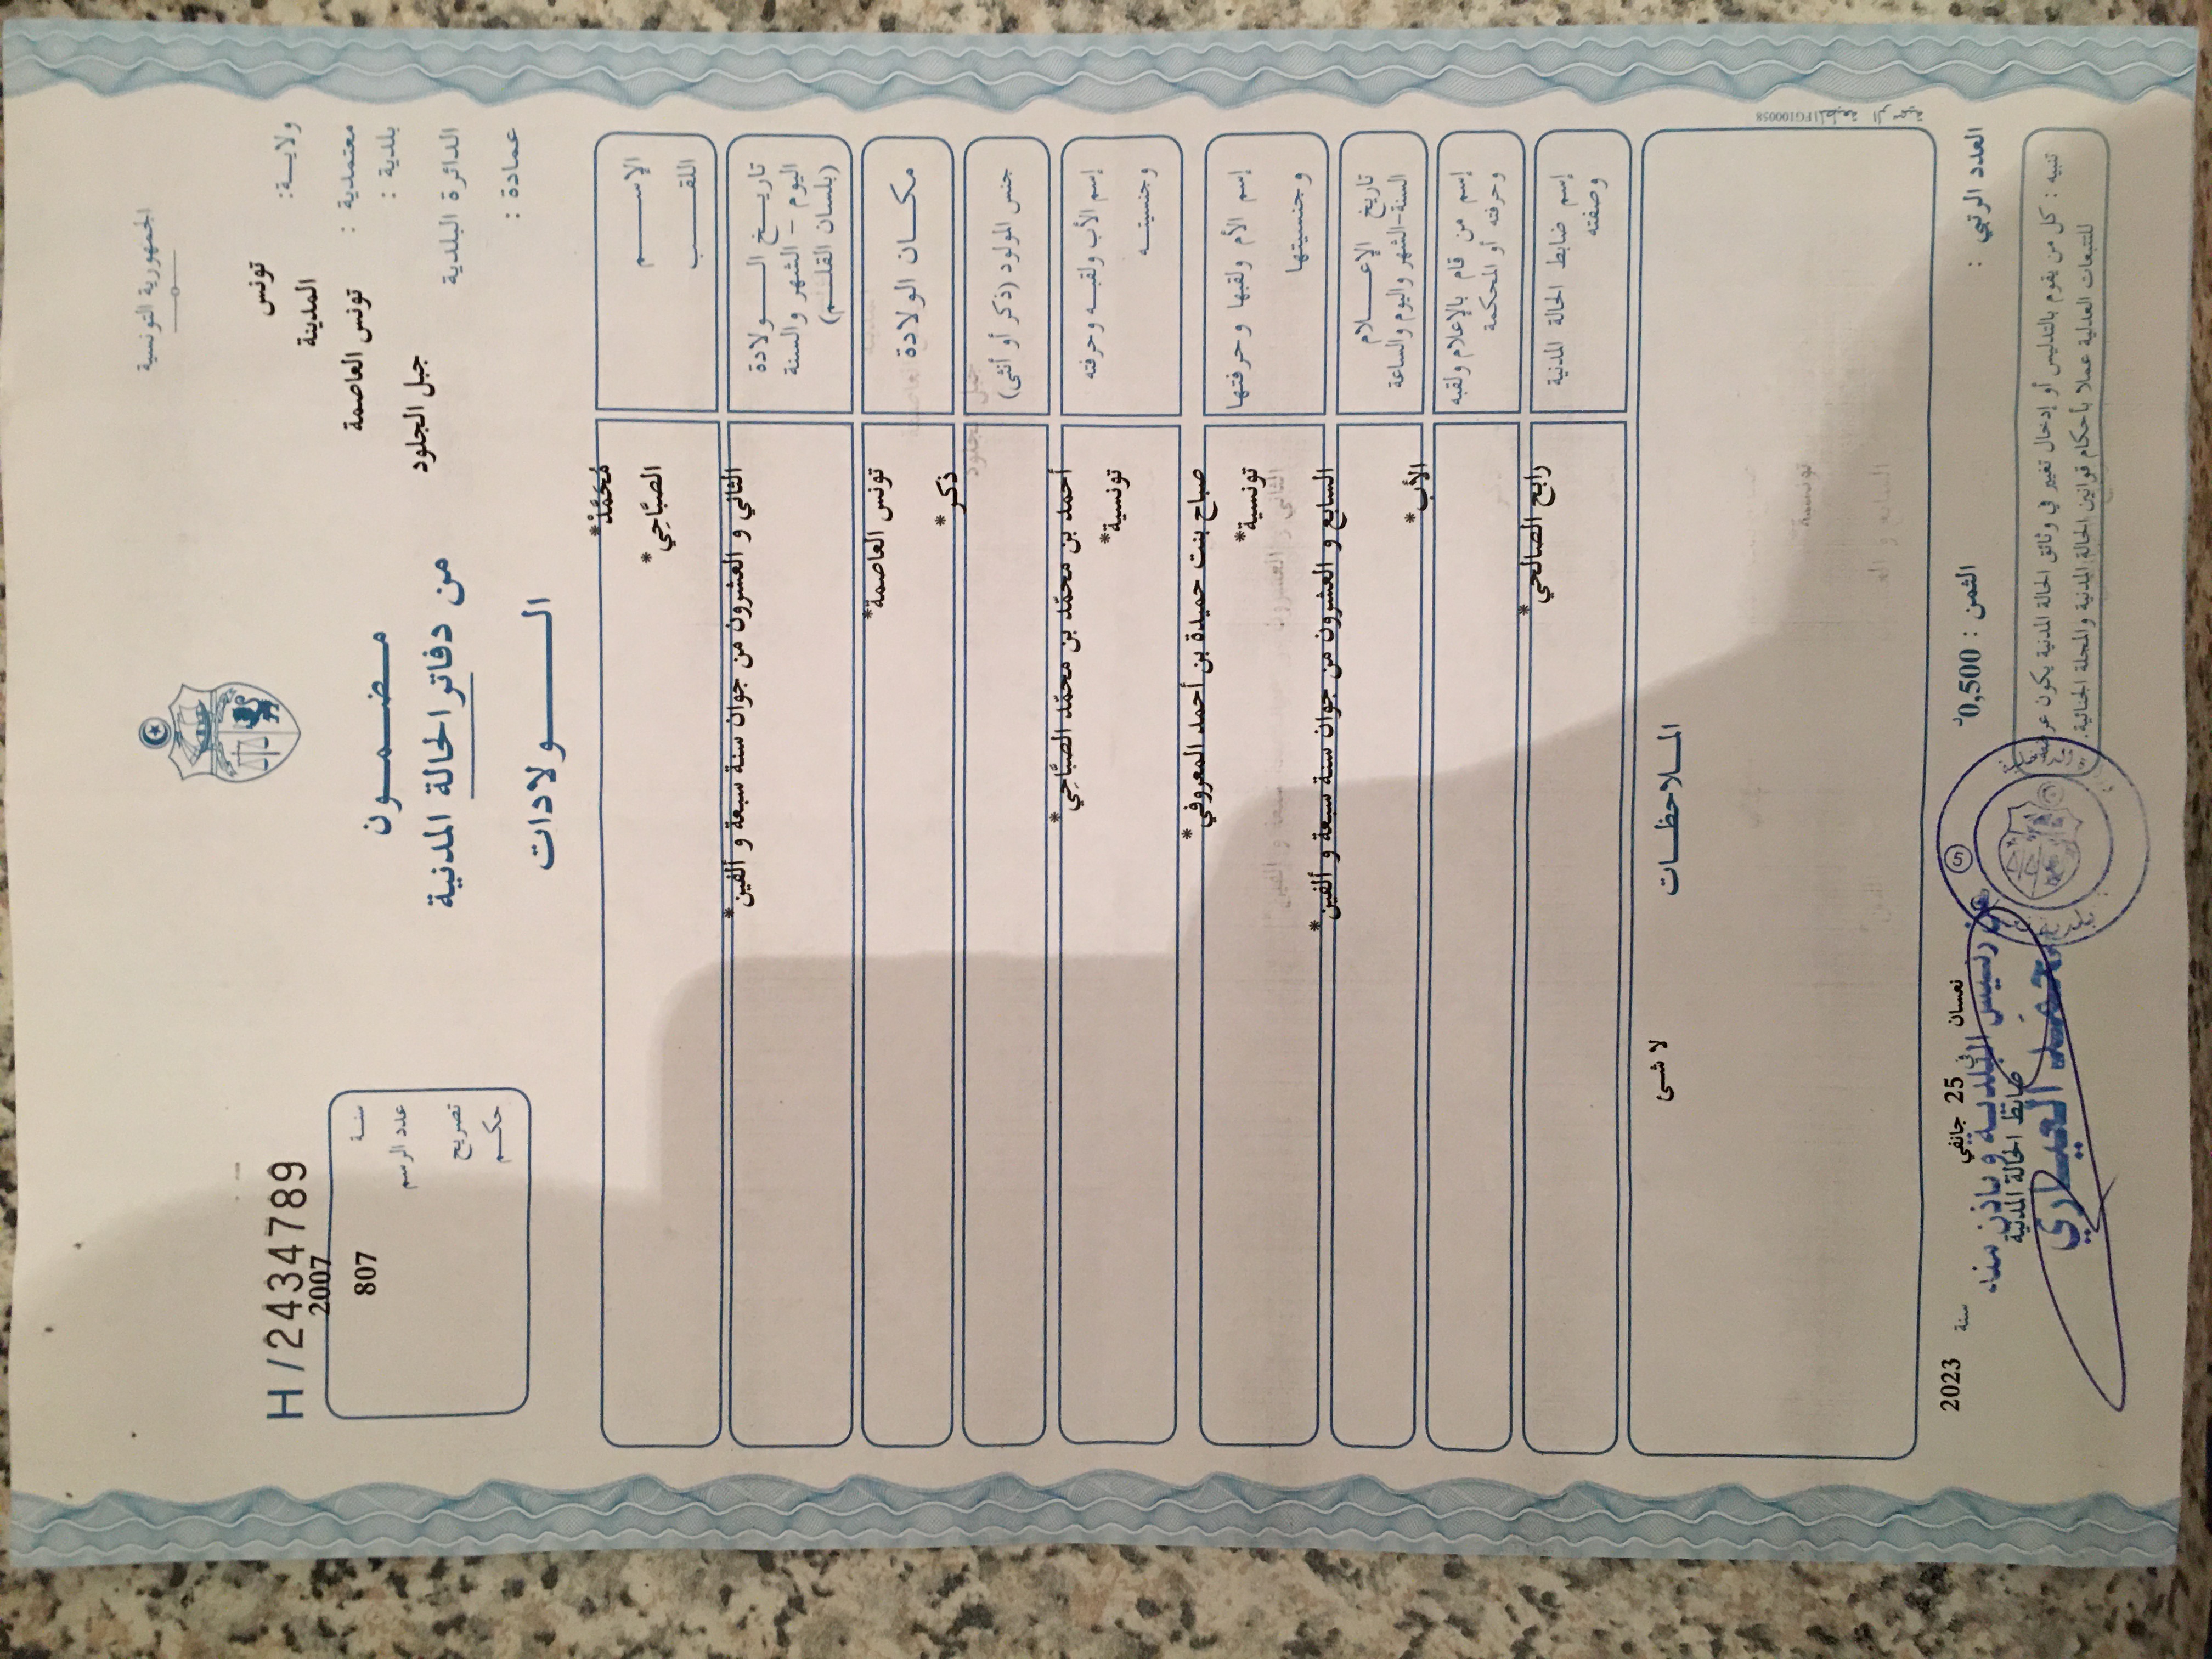 الجمهورية التونسية
ولاية: تونس
معتمدية : المدينة
بلدية : تونس العاصمة
الدائرة البلدية جبل الجلود
عمادة :
H/2434789
سنة 2007
عدد الرسم 807
تصريح
حكم
مضمون
من دفاتر الحالة المدنية
الولادات
الإسم مُحَمَّدْ*
اللقب الصبَّاحِي*
تاريخ الولادة
اليوم – الشهر والسنة
(بلسان القلم)
الثاني و العشرون من جوان سنة سبعة و ألفين*
مكان الولادة تونس العاصمة*
جنس المولود (ذكر أو أنثى) ذكر*
إسم الأب ولقبه وحرفته أحمد بن محمّد بن محمّد الصبَّاحِي*
وجنسيته تونسية*
إسم الأم ولقبها وحرفتها صباح بنت حميدة بن أحمد المعروفي*
وجنسيتها تونسية*
تاريخ الإعلام
السنة-الشهر واليوم والساعة
السابع و العشرون من جوان سنة سبعة و ألفين*
إسم من قام بالإعلام ولقبه
وحرفته أو المحكمة
الأب*
إسم ضابط الحالة المدنية
وصفته
رابح الصالحي*
الملاحظات
لا شئ
FG100058 المطبعة الرسمية
العدد الرتبي :
الثمن : 0,500د
نعسان في 25 جانفي سنة 2023
ضابط الحالة المدنية
عن رئيس البلدية وبإذن منه
محمد العياري
5
تنبيه : كل من يقوم بالتدليس أو إدخال تغيير في وثائق الحالة المدنية يكون عرضة
للتتبعات العدلية عملا بأحكام قوانين الحالة المدنية والمجلة الجنائية.